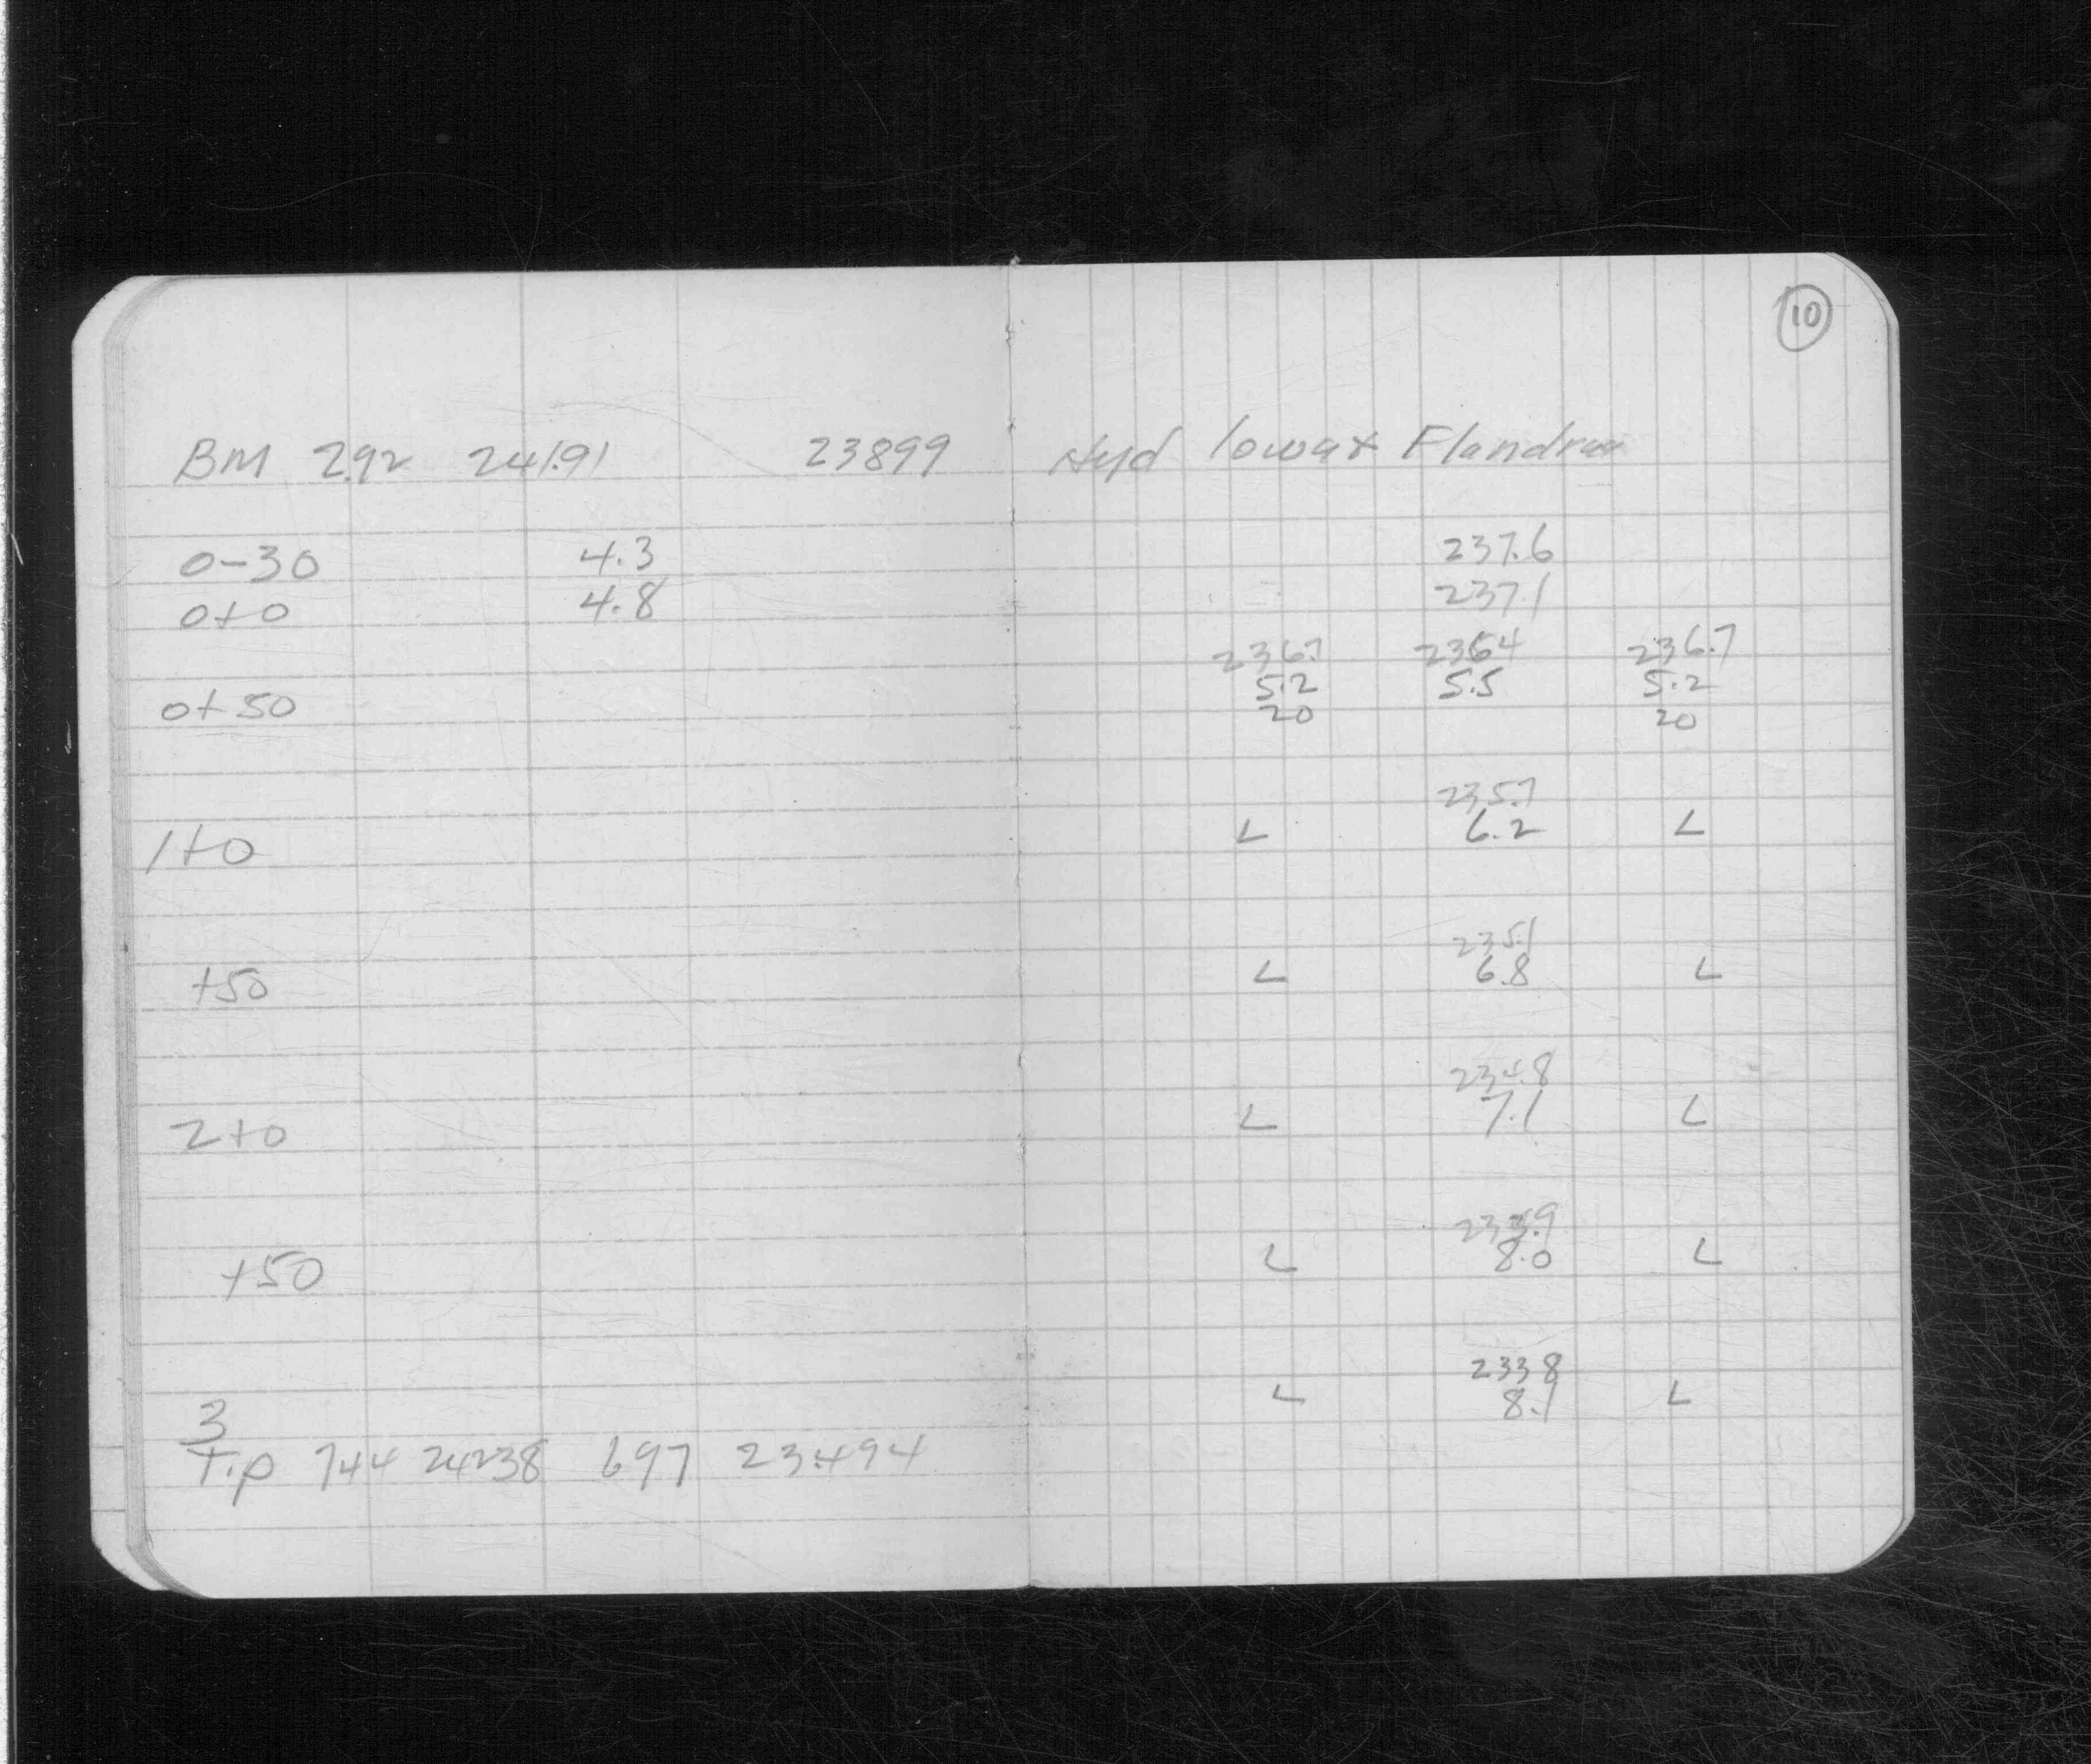 10
BM 2.92 241.91 23899 Hyd Iowa & Flandrau
0-30 4.3 237.6
0+0 4.8 237.1
236.7 2364 236.7
5.2 5.5 5.2
0+50 20 20
235.7
1+0 L 6.2 L
235.1
+50 L 6.8 L
234.8
2+0 L 7.1 L
233.9
+50 L 8.0 L
2338
3 L 8.1 L
T.p 744 24238 697 234.94